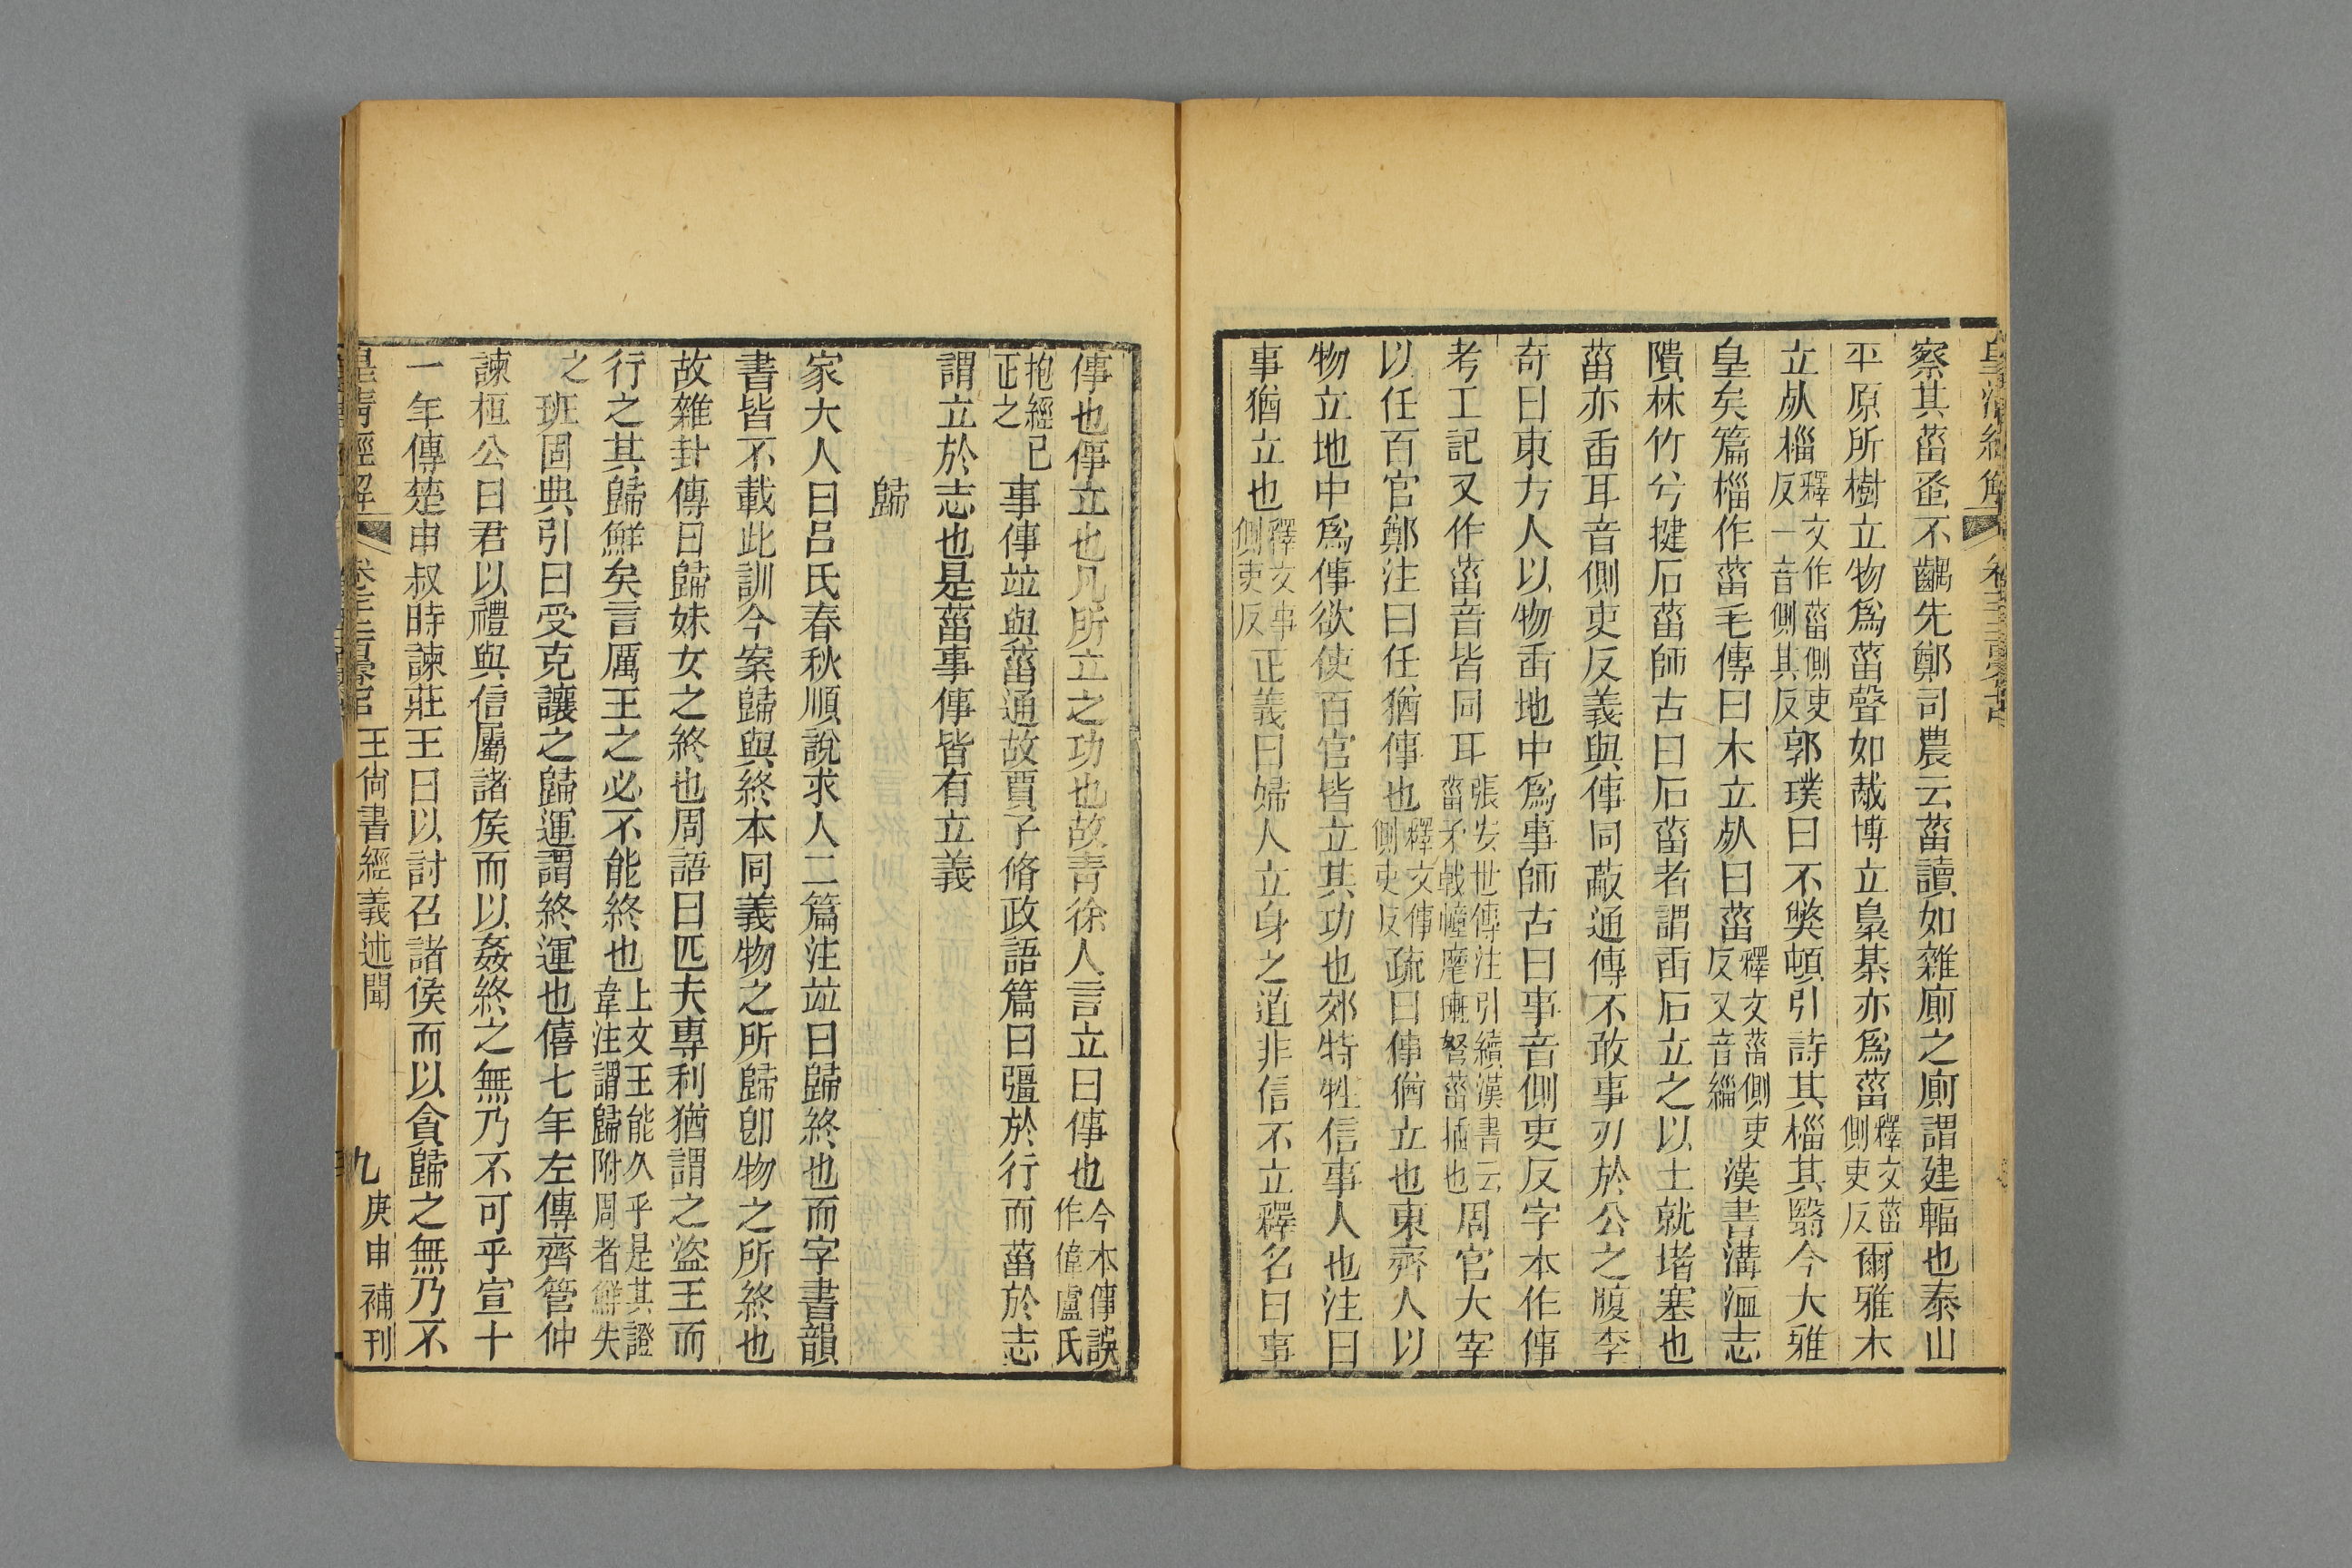 察其菑蚤不齵先鄭司農云菑讀如雜廁之廁謂建輻也泰山
平原所樹立物爲菑聲如胾博立梟棊亦爲菑釋文菑側吏反爾雅木
立𣦸椔釋文作菑側吏反一音側其反郭璞曰不獘頓引詩其椔其翳今大雅
皇矣篇椔作菑毛傳曰木立𣦸曰菑釋文菑側吏反又音緇漢書溝洫志
隤林竹兮揵石菑師古曰石菑者謂臿石立之以土就堵塞也
菑亦臿耳音側吏反義與倳同蒯通傳不敢事刃於公之腹李
奇曰東方人以物臿地中爲事師古曰事音側吏反字本作倳
考工記又作菑音皆同耳張安世傳注引續漢書云菑矛戟幢麾𨏥弩菑插也周官大宰
以任百官鄭注曰任猶倳也釋文倳側吏反疏曰倳猶立也東齊人以
物立地中爲倳欲使百官皆立其功也郊特牲信事人也注曰
事猶立也釋文事側吏反正義曰婦人立身之道非信不立釋名曰事
傳也倳立也凡所立之功也故青徐人言立曰倳也今本倳誤作偉盧氏
抱經已正之事傳竝與菑通故賈子脩政語篇曰彊於行而菑於志
謂立於志也是菑事傳皆有立義
歸
家大人曰呂氏春秋順說求人二篇注竝曰歸終也而字書韻
書皆不載此訓今案歸與終本同義物之所歸卽物之所終也
故雜卦傳曰歸妹女之終也周語曰匹夫專利猶謂之盜王而
行之其歸鮮矣言厲王之必不能終也上文王能久乎是其證韋注謂歸附周者鮮失
之班固典引曰受克讓之歸運謂終運也僖七年左傳齊管仲
諫桓公曰君以禮與信屬諸矦而以姦終之無乃不可乎宣十
一年傳楚申叔時諫莊王曰以討召諸矦而以貪歸之無乃不
皇清經解 王尙書經義述聞 九 庚申補刊